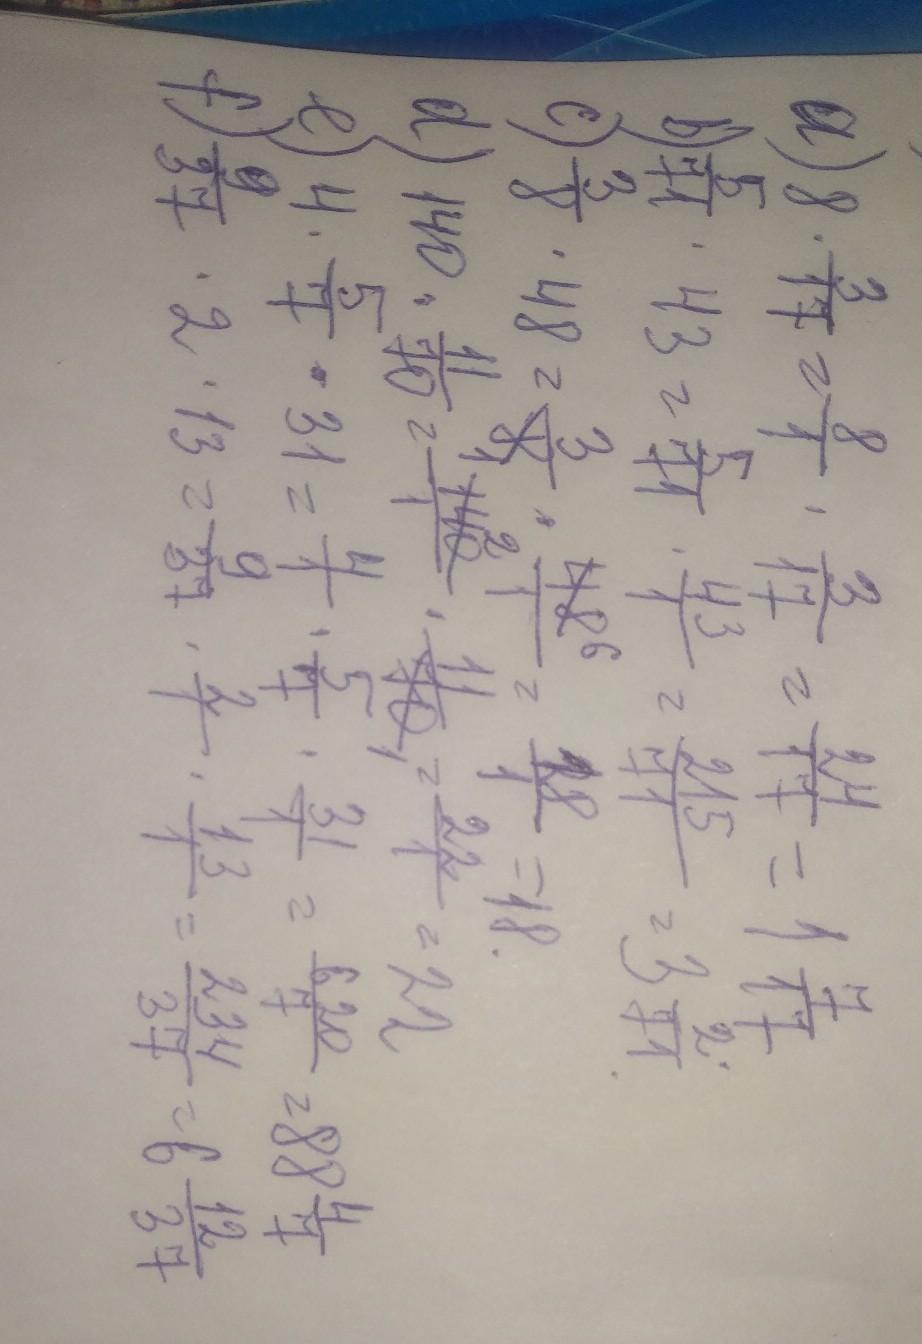 a) 8 · 3/17 = 8/1 · 3/17 = 24/17 = 1 7/17
b) 5/71 · 43 = 5/71 · 43/1 = 215/71 = 3 2/71.
c) 3/8 · 48 = 3/8 1 · 48 6/1 = 18/1 = 18.
d) 140 · 11/70 = 140 2/1 · 11/70 1 = 22/1 = 22
e) 4 · 5/7 · 31 = 4/1 · 5/7 · 31/1 = 620/7 = 88 4/7
f) 9/37 · 2 · 13 = 9/37 · 2/1 · 13/1 = 234/37 = 6 12/37